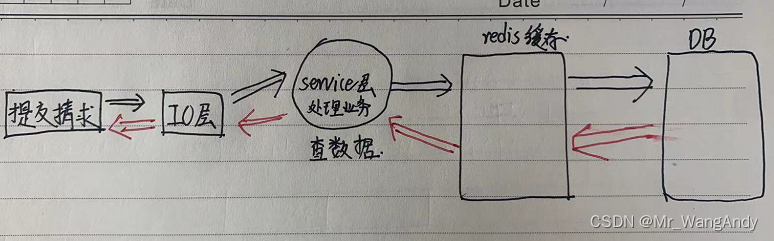 Date / /
redis缓存.
DB
提交请求
IO层
service层
处理业务
查数据.
CSDN @Mr_WangAndy